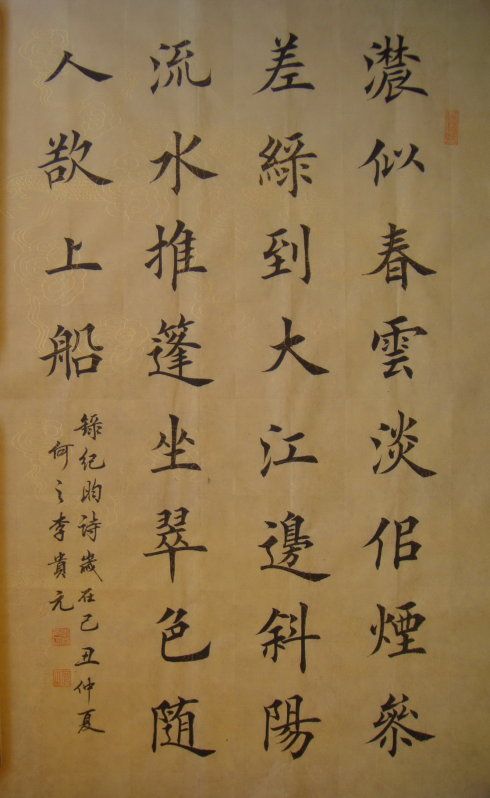 濃似春雲淡佀煙參
差綠到大江邊斜陽
流水推篷坐翠色随
人欲上船
錄紀昀詩歲在己丑仲夏
何之李貴元